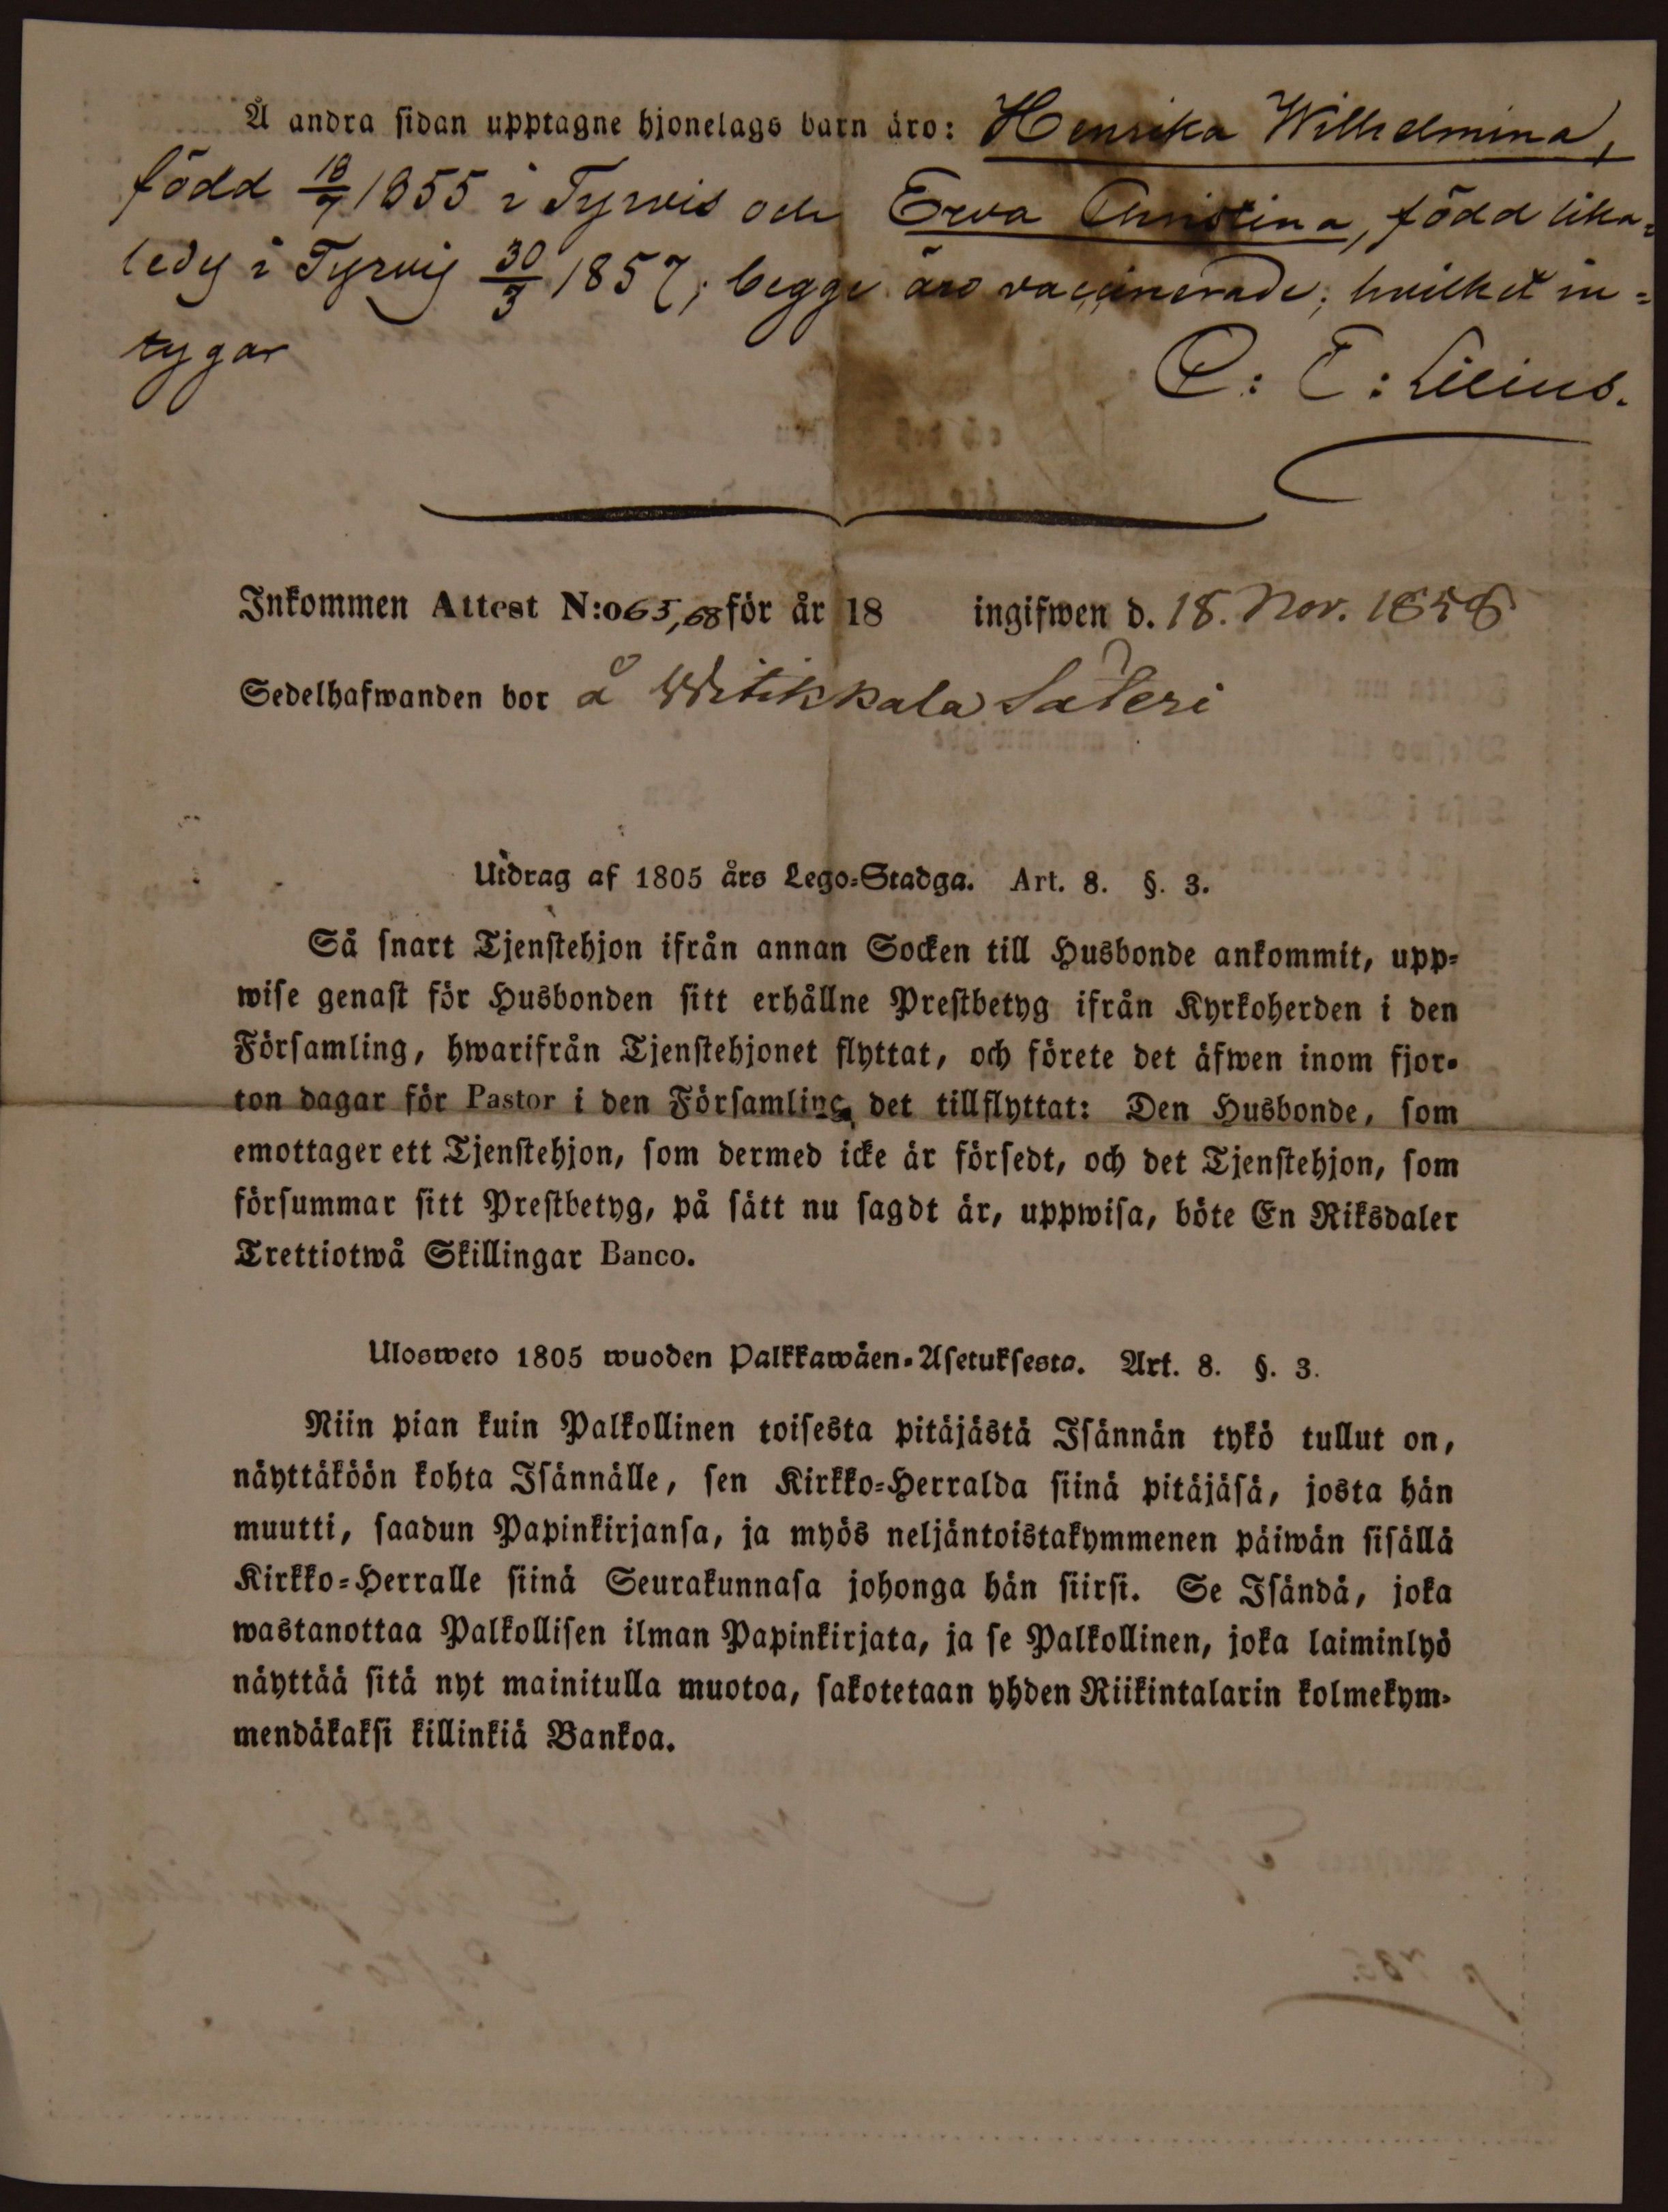 Å andra sidan upptagne hjonelags barn äro: Henrika Wilhelmina,
född 18/7 1855 i Tyrvis och Eva Christina, född lika=
ledes i Tyrvis 30/3 1857; begge äro vaccinerade; hvilket in=
tygar C: E: Lilius.
Inkommen Attest N:o 65,68 för år 18 ingifwen d. 18. Nov. 1858
Sedelhafwanden bor å Witikkala Säteri
Utdrag af 1805 års Lego=Stadga. Art. 8. §. 3.
Så snart Tjenstehjon ifrån annan Socken till Husbonde ankommit, upp=
wise genast för Husbonden sitt erhållne Prestbetyg ifrån Kyrkoherden i den
Församling, hwarifrån Tjenstehjonet flyttat, och förete det äfwen inom fjor=
ton dagar för Pastor i den Församling det tillflyttat: Den Husbonde, som
emottager ett Tjenstehjon, som dermed icke är försedt, och det Tjenstehjon, som
försummar sitt Prestbetyg, på sätt nu sagdt är, uppwisa, böte En Riksdaler
Trettiotwå Skillingar Banco.
Ulosweto 1805 wuoden Palkkawäen=Asetuksesta. Art. 8. §. 3.
Niin pian kuin Palkollinen toisesta pitäjästä Isännän tykö tullut on,
näyttäköön kohta Isännälle, sen Kirkko=Herralda siinä pitäjäsä, josta hän
muutti, saadun Papinkirjansa, ja myös neljäntoistakymmenen päiwän sisällä
Kirkko=Herralle siinä Seurakunnasa johonga hän siirsi. Se Isändä, joka
wastanottaa Palkollisen ilman Papinkirjata, ja se Palkollinen, joka laiminlyö
näyttää sitä nyt mainitulla muotoa, sakotetaan yhden Riikintalarin kolmekym=
mendäkaksi killinkiä Bankoa.